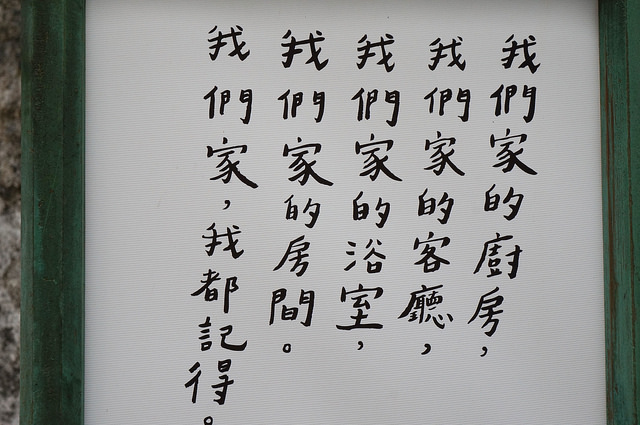 我們家的廚房，
我們家的客廳，
我們家的浴室，
我們家的房間。
我們家，我都記得。